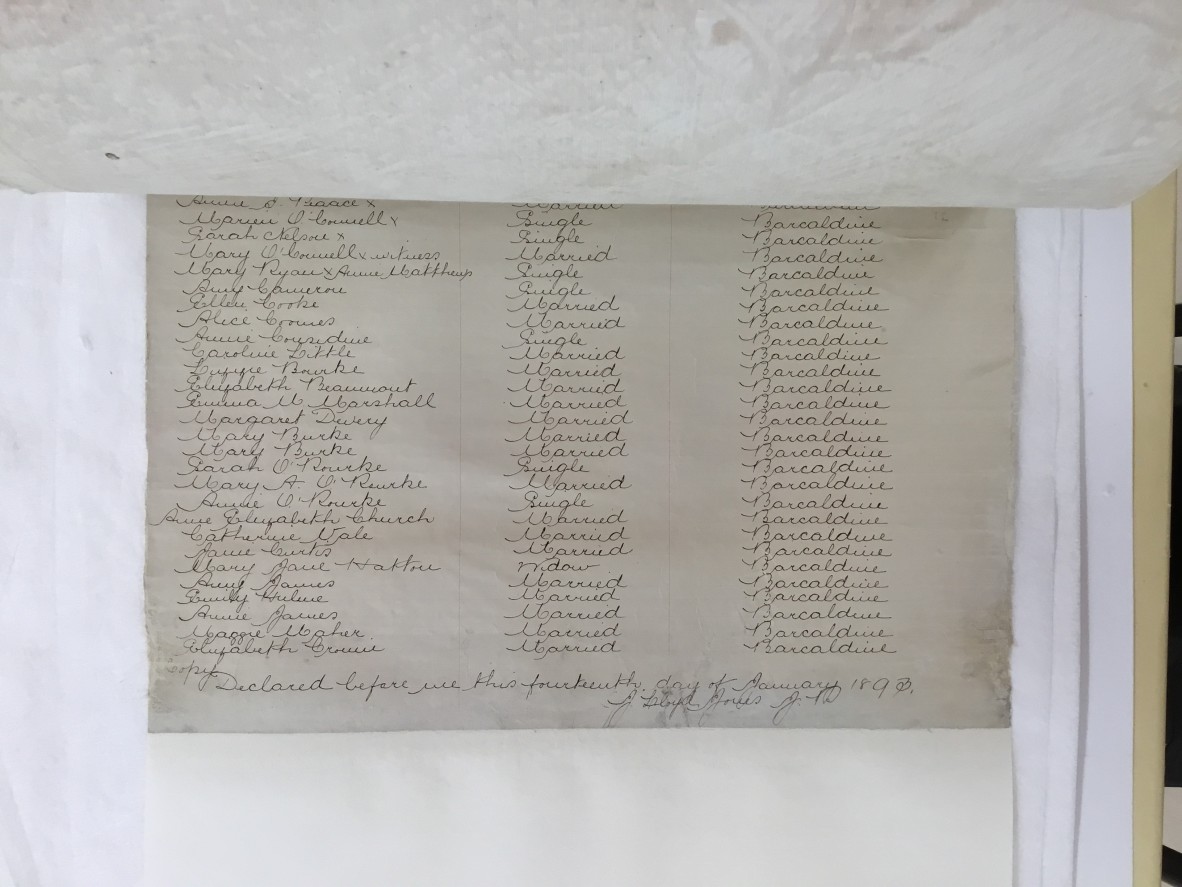 Annie E. Isaac x Married
Marien O'Connell x Single Barcaldine
Sarah Nelson x Single Barcaldine
Mary O'Connell x witness Married Barcaldine
Mary Ryan x Annie Matthews Single Barcaldine
Amy Cameron Single Barcaldine
Ellen Cooke Married Barcaldine
Alice Coomes Married Barcaldine
Annie Considine Single Barcaldine
Caroline Little Married Barcaldine
Lizzie Bourke Married Barcaldine
Elizabeth Beaumont Married Barcaldine
Emma M. Marshall Married Barcaldine
Margaret Divery Married Barcaldine
Mary Burke Married Barcaldine
Mary Burke Married Barcaldine
Sarah O'Rourke Single Barcaldine
Mary A. O'Rourke Married Barcaldine
Annie O'Rourke Single Barcaldine
Anne Elizabeth Church Married Barcaldine
Catherine Vale Married Barcaldine
Jane Curtis Married Barcaldine
Mary Jane Hatton Widow Barcaldine
Amy James Married Barcaldine
Emily Hulme Married Barcaldine
Annie James Married Barcaldine
Maggie Maher Married Barcaldine
Elizabeth Cronin Married Barcaldine
Copy
Declared before me this fourteenth day of January 1893.
J. Lloyd Jones J.P.